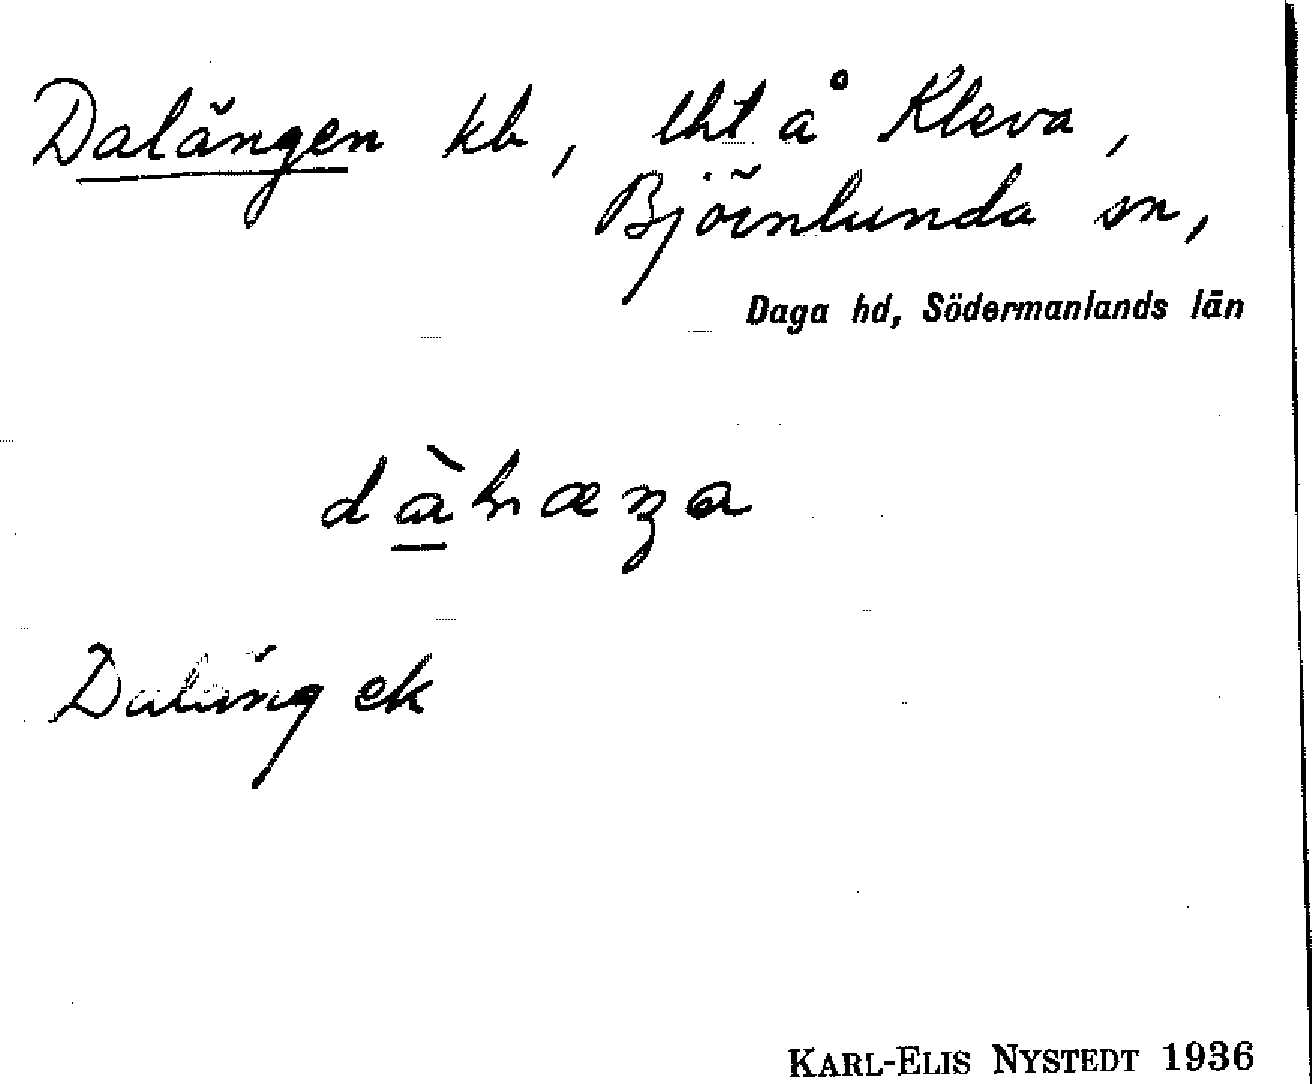 Dalängen kb, lht å Kleva,
Björnlunda sn,
Daga hd, Södermanlands län
Daläng ek
KARL-ELIS NYSTEDT 1936